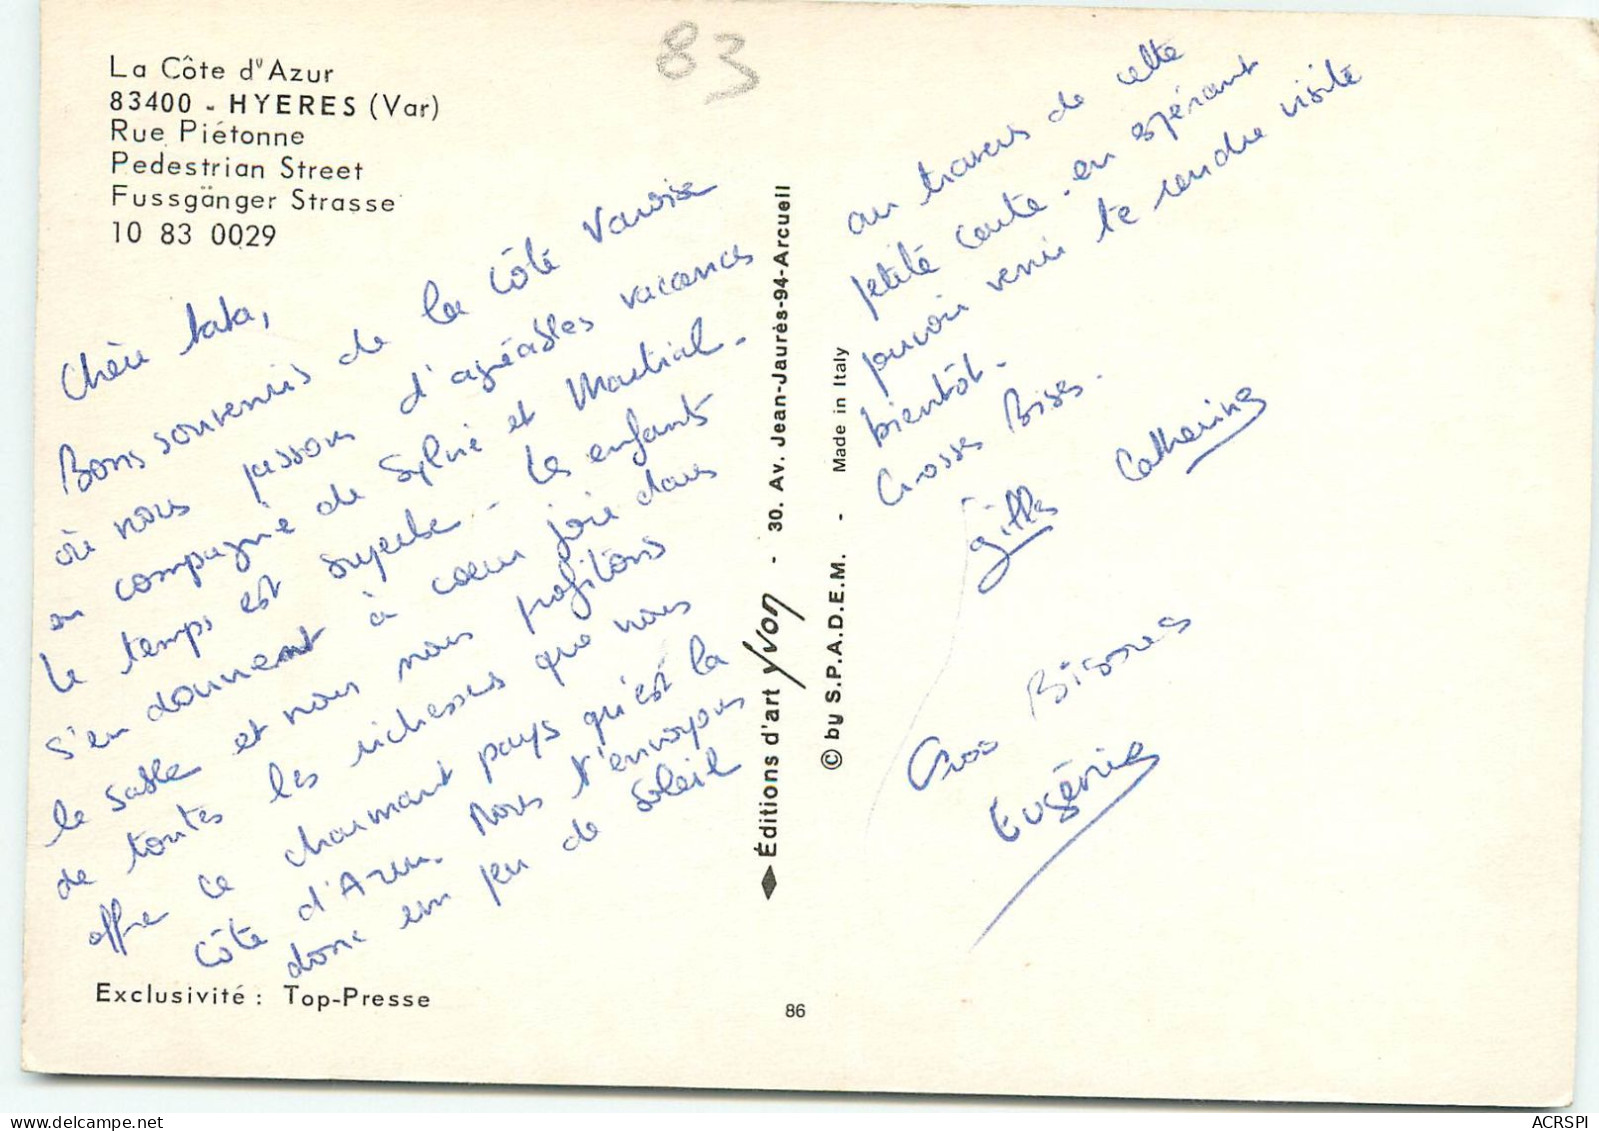 La Côte d'Azur
83400 - HYERES (Var)
Rue Piétonne
Pedestrian Street
Fussgänger Strasse
10 83 0029
83
Chère tata,
Bons souvenirs de la Côte Varoise
où nous passons d'agréables vacances
en compagnie de Sylvie et Martial.
Le temps est superbe - Les enfants
s'en donnent à coeur joie dans
le sable et nous nous profitons
de toutes les richesses que nous
offre ce charmant pays qu'est la
Côte d'Azur. Nous t'envoyons
donc un peu de soleil
Exclusivité : Top-Presse
Éditions d'art Yvon - 30. Av. Jean-Jaurès-94-Arcueil
© by S.P.A.D.E.M. - Made in Italy
86
au travers de cette
petite carte - en espérant
pouvoir venir te rendre visite
bientôt.
Grosses Bises.
Gilles Catherine
Gros Bisous
Eugénie
ACRSPI